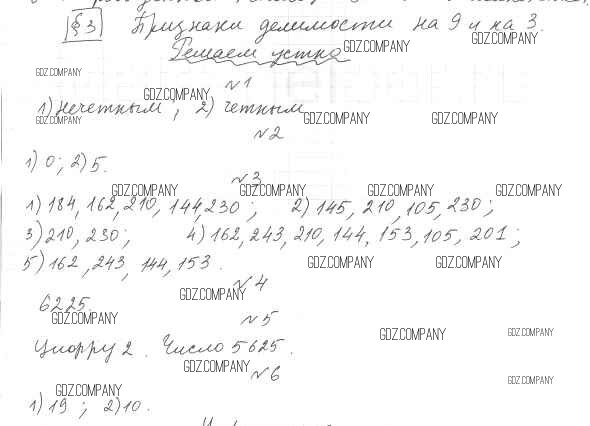 §3 Признаки делимости на 9 и на 3.
Решаем устно
GDZ.COMPANY GDZ.COMPANY
GDZ.COMPANY
№1
GDZ.COMPANY
1) нечетным; 2) четным
GDZ.COMPANY GDZ.COMPANY GDZ.COMPANY
№2
1) 0; 2) 5.
№3
GDZ.COMPANY GDZ.COMPANY GDZ.COMPANY GDZ.COMPANY
1) 184, 162, 210, 144, 230; 2) 145, 210, 105, 230;
3) 210, 230; 4) 162, 243, 210, 144, 153, 105, 201;
5) 162, 243, 144, 153.
GDZ.COMPANY GDZ.COMPANY
№4
GDZ.COMPANY
6225
GDZ.COMPANY
№5
GDZ.COMPANY GDZ.COMPANY
Цифру 2. Число 5625.
GDZ.COMPANY
№6
GDZ.COMPANY GDZ.COMPANY
1) 19; 2) 10.